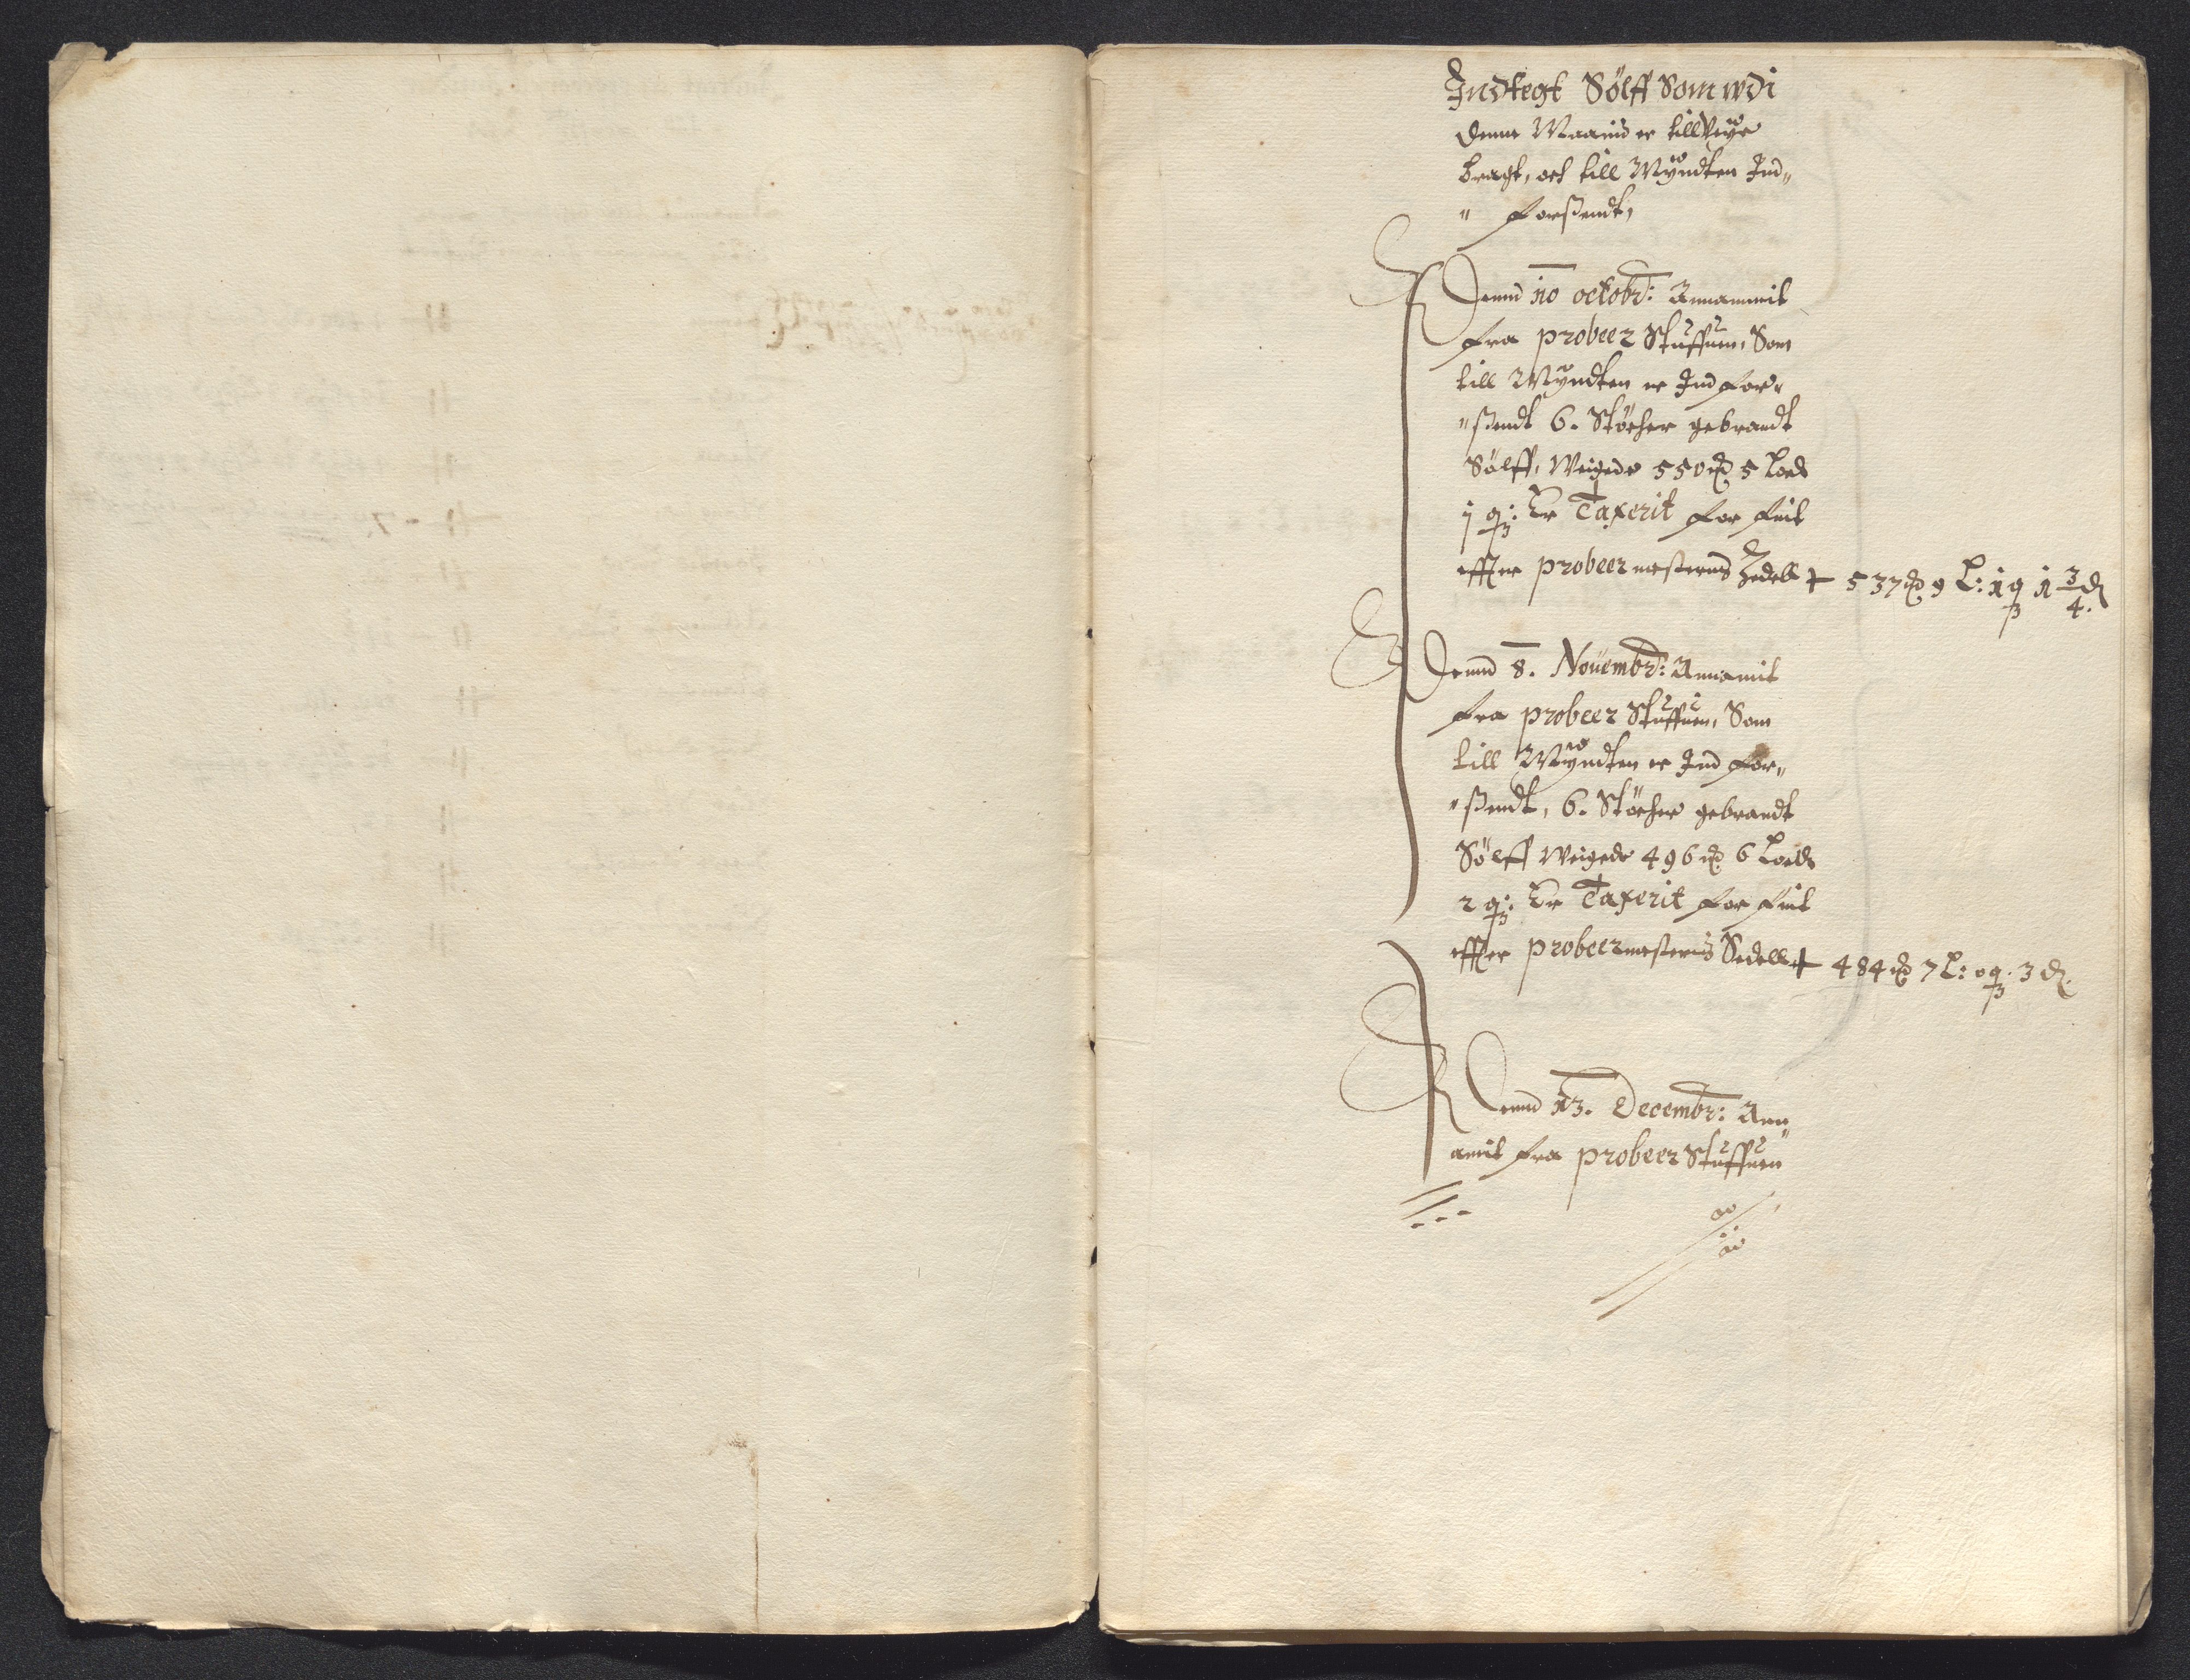 Indtegt Sölff Som wdi
denne Maanid er till Veÿe
bragt, och till Mÿndten Ind„
„ forsendt,
Denndt 10 octobr: Annammit
fra probeer Stuffuen, Som
till Mÿndten er Ind for„
„sendt 6. Stöcher gebrandt
Sölff, Weigede 550 mk 5 Lod
1 q: Er Taxerit for fint
effter probeermesterens Zedell + 537 mk 9 L: 1 q 1 3/4 d
Dennd 8. Nouembr: Annamit
fra probeer Stuffuen, Som
till Mÿndten er Ind for„
„sendt, 6. Stöcher gebrandt
Sölff Weigede 496 mk 6 Lod
2 q: Er Taxerit for fint
effter probeermesterens Sedell + 484 mk 7 L: 0 q. 3 d.
Dennd 13. Decembr: Ann„
amit fra probeer Stuffuen